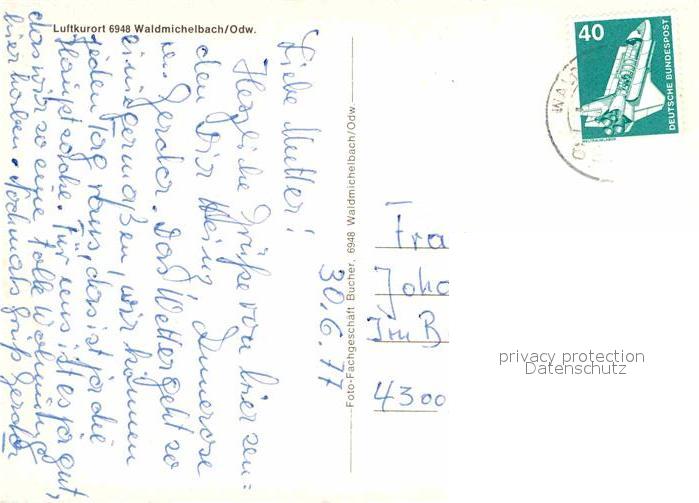 Luftkurort 6948 Waldmichelbach/Odw.
Liebe Mutter!
Herzliche Grüße von hier sen=
den Dir Heinz,
u. Gerda. Das Wetter geht so
einigermaßen, wir können
jeden Tag raus, das ist für die
Hauptsache. Für uns ist es ja gut,
das wir so eine tolle Wohnung
hier haben. Nochmals Gruß Gerda
30.6.77
Foto-Fachgeschäft Bucher, 6948 Waldmichelbach/Odw.
40
DEUTSCHE BUNDESPOST
WALD
Fra
Joha
Im B
4300
privacy protection
Datenschutz